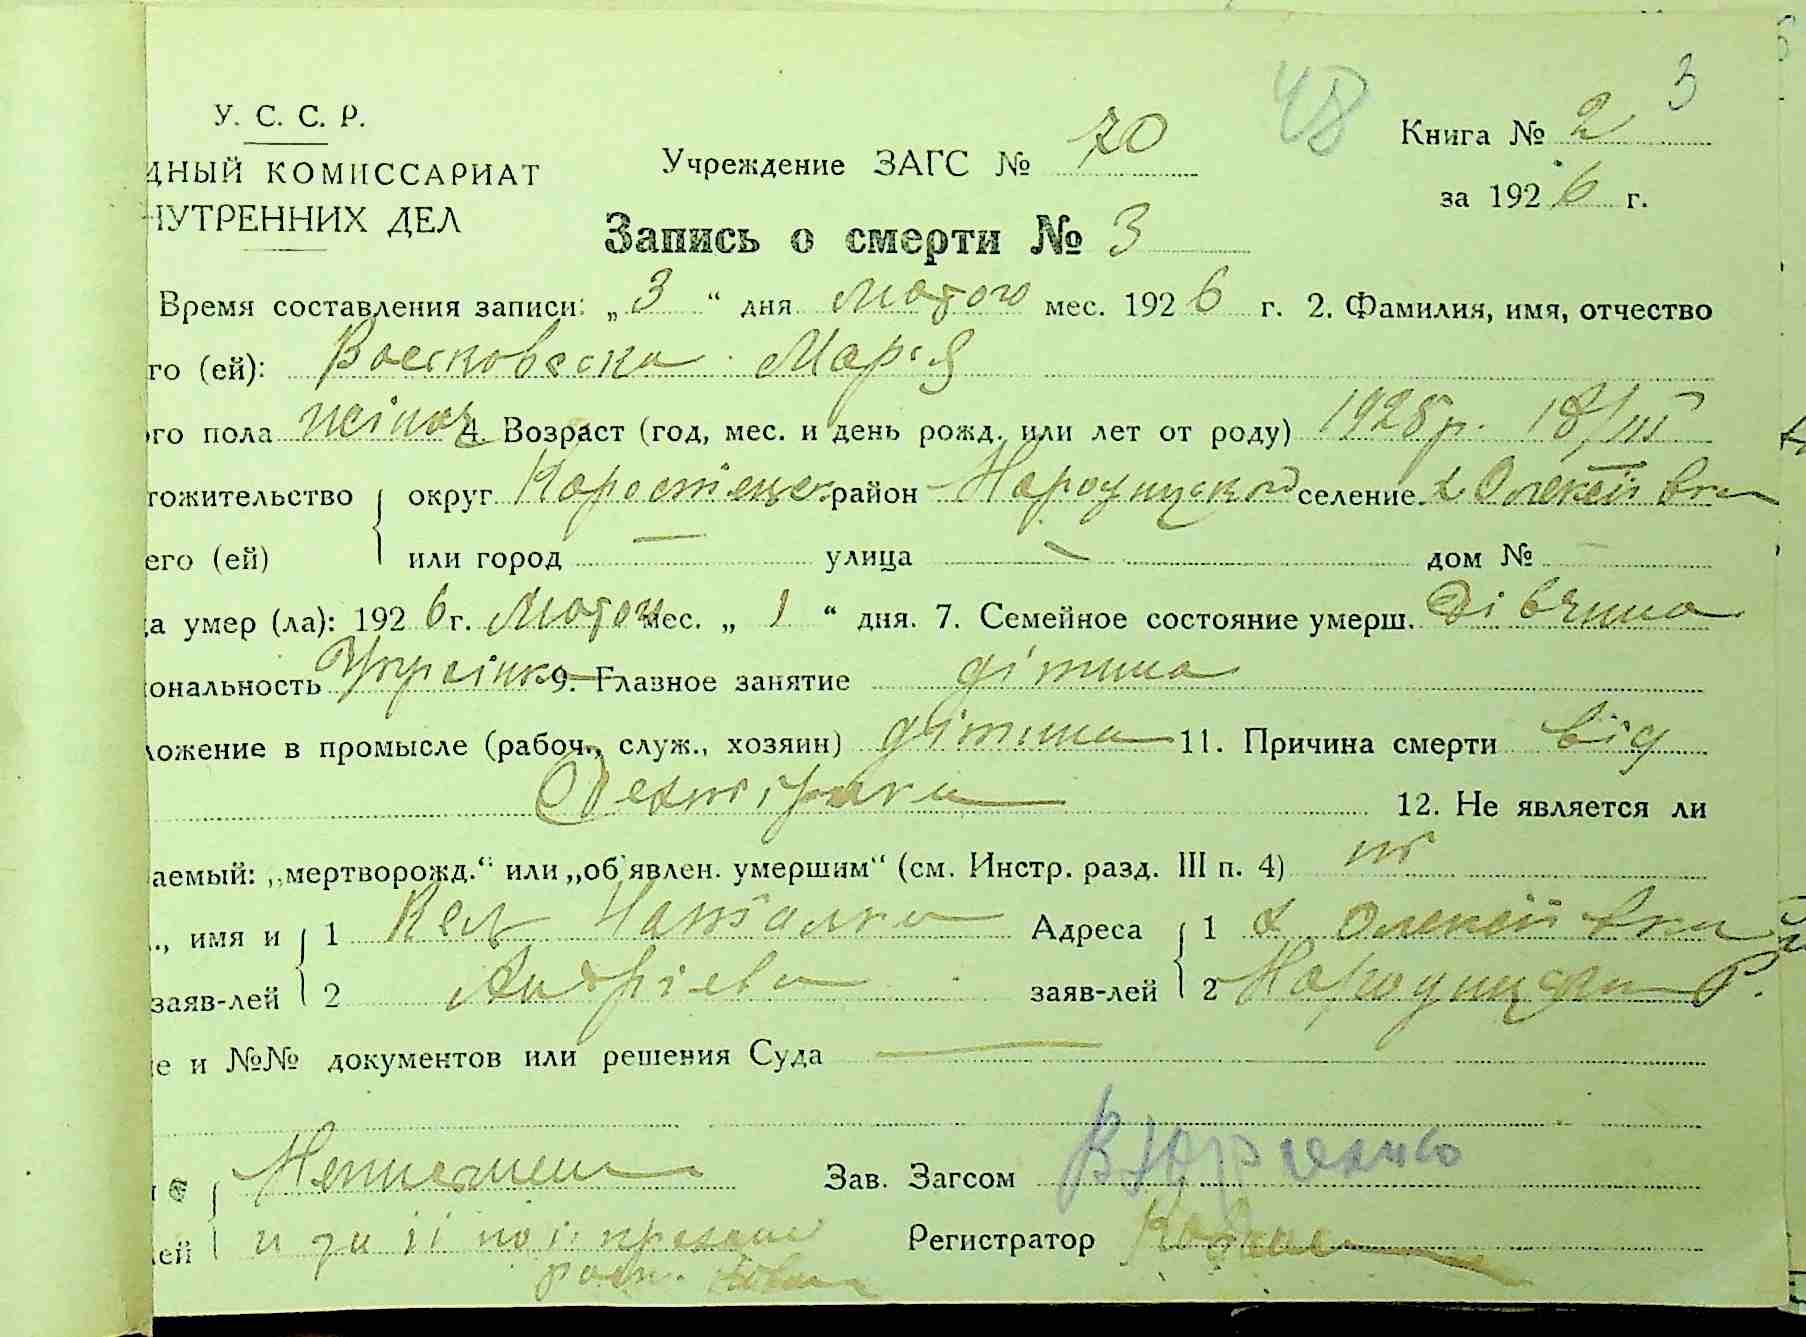 48 3
У. С. С. Р.
Учреждение ЗАГС № 70 Книга № 2
дный КОМИССАРИАТ
за 1926 г.
нутренних ДЕЛ
Запись о смерти № 3
Время составления записи: „3“ дня Лютого мес. 1926 г. 2. Фамилия, имя, отчество
го (ей): Марія
го пола жіноч 4. Возраст (год, мес. и день рожд. или лет от роду) 1925 р. 18/III
тожительство округ Коростенськ район Народицький селение х Олексіївка
его (ей) или город — улица — дом № —
а умер (ла): 1926 г. Лютого мес. „1“ дня. 7. Семейное состояние умерш. Дівчина
ональность Українка 9. Главное занятие дітина
ложение в промысле (рабоч., служ., хозяин) дітина 11. Причина смерти від
12. Не является ли
аемый: „мертворожд.“ или „об'явлен. умершим“ (см. Инстр. разд. III п. 4) ні
., имя и 1 Наталка Адреса 1 х Олексіївка
заяв-лей 2 Андріева заяв-лей 2 Народицьки р.
е и №№ документов или решения Суда —
Неписмен Зав. Загсом
ей за її Регистратор